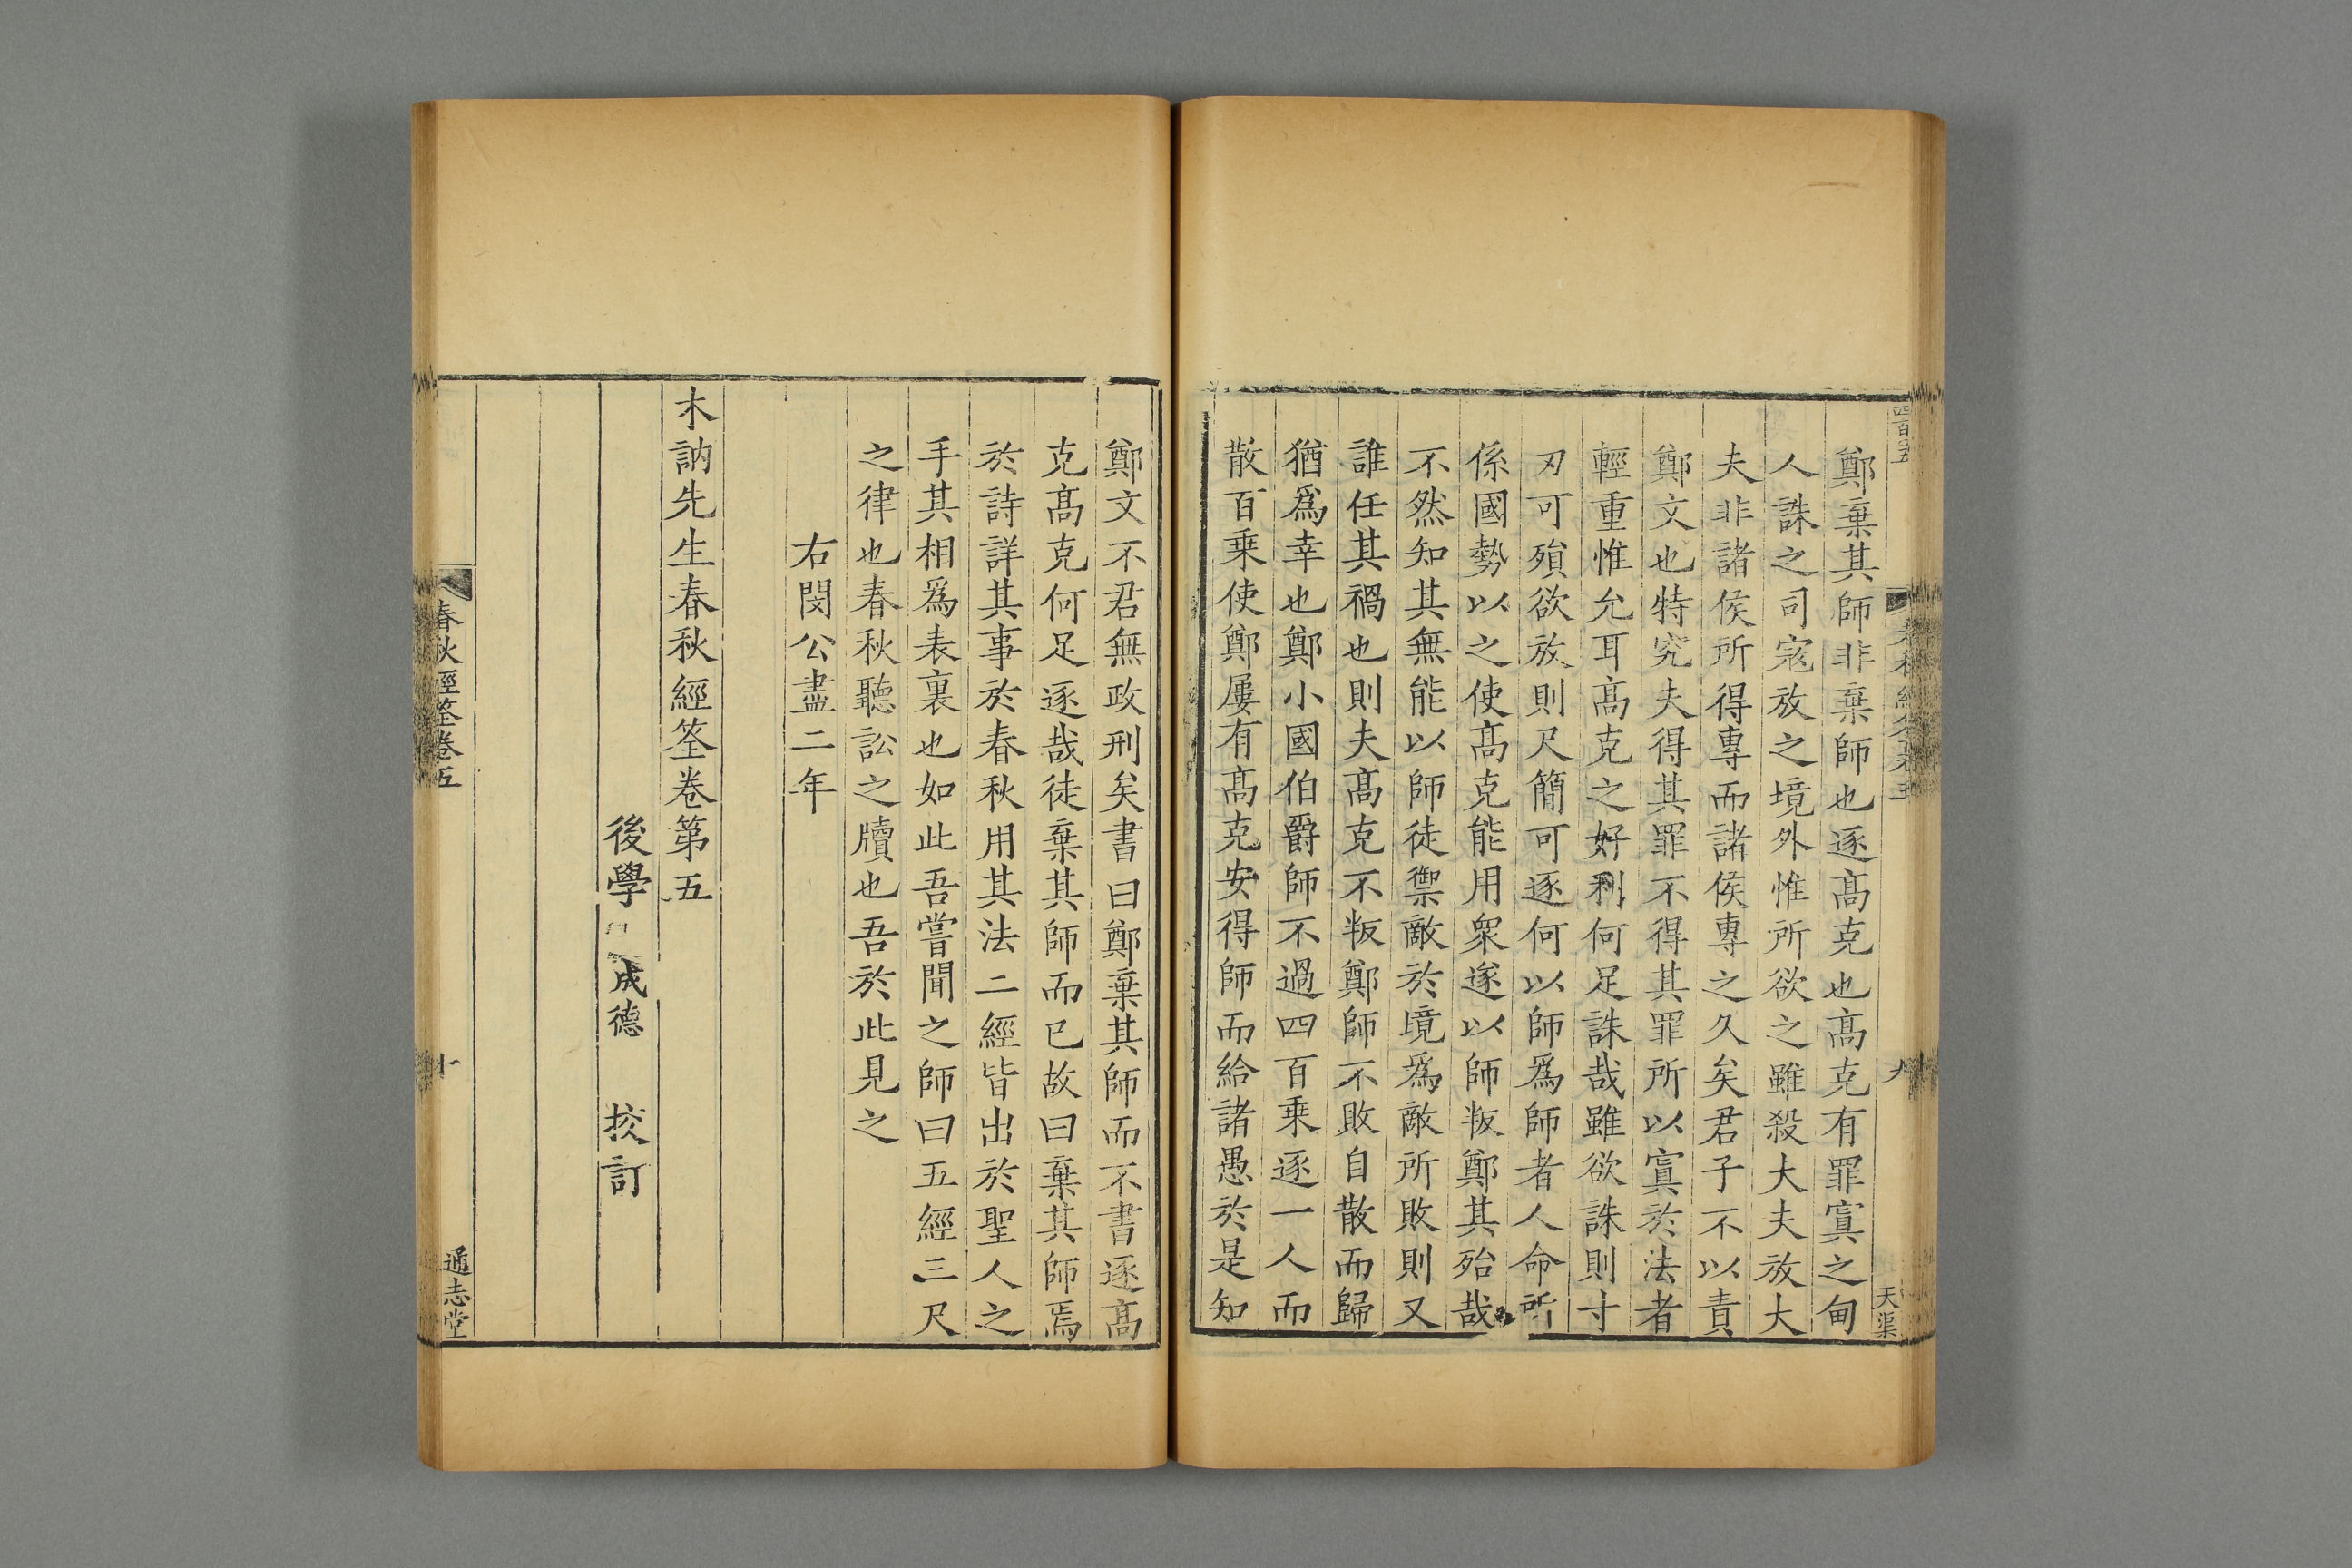 四百五
九
天渠
鄭棄其師非棄師也逐高克也高克有罪寘之甸
人誅之司寇放之境外惟所欲之雖殺大夫放大
夫非諸侯所得專而諸侯專之久矣君子不以責
鄭文也特究夫得其罪不得其罪所以寘於法者
輕重惟允耳高克之好利何足誅哉雖欲誅則寸
刃可殞欲放則尺簡可逐何以師爲師者人命所
係國勢以之使高克能用衆遂以師叛鄭其殆哉
不然知其無能以師徒禦敵於境爲敵所敗則又
誰任其禍也則夫高克不叛鄭師不敗自散而歸
猶爲幸也鄭小國伯爵師不過四百乘逐一人而
散百乘使鄭屢有高克安得師而給諸愚於是知
鄭文不君無政刑矣書曰鄭棄其師而不書逐高
克高克何足逐哉徒棄其師而已故曰棄其師焉
於詩詳其事於春秋用其法二經皆出於聖人之
手其相爲表裏也如此吾嘗聞之師曰五經三尺
之律也春秋聽訟之牘也吾於此見之
右閔公盡二年
木訥先生春秋經筌卷第五
後學 成德 挍訂
春秋經筌卷五
十
通志堂